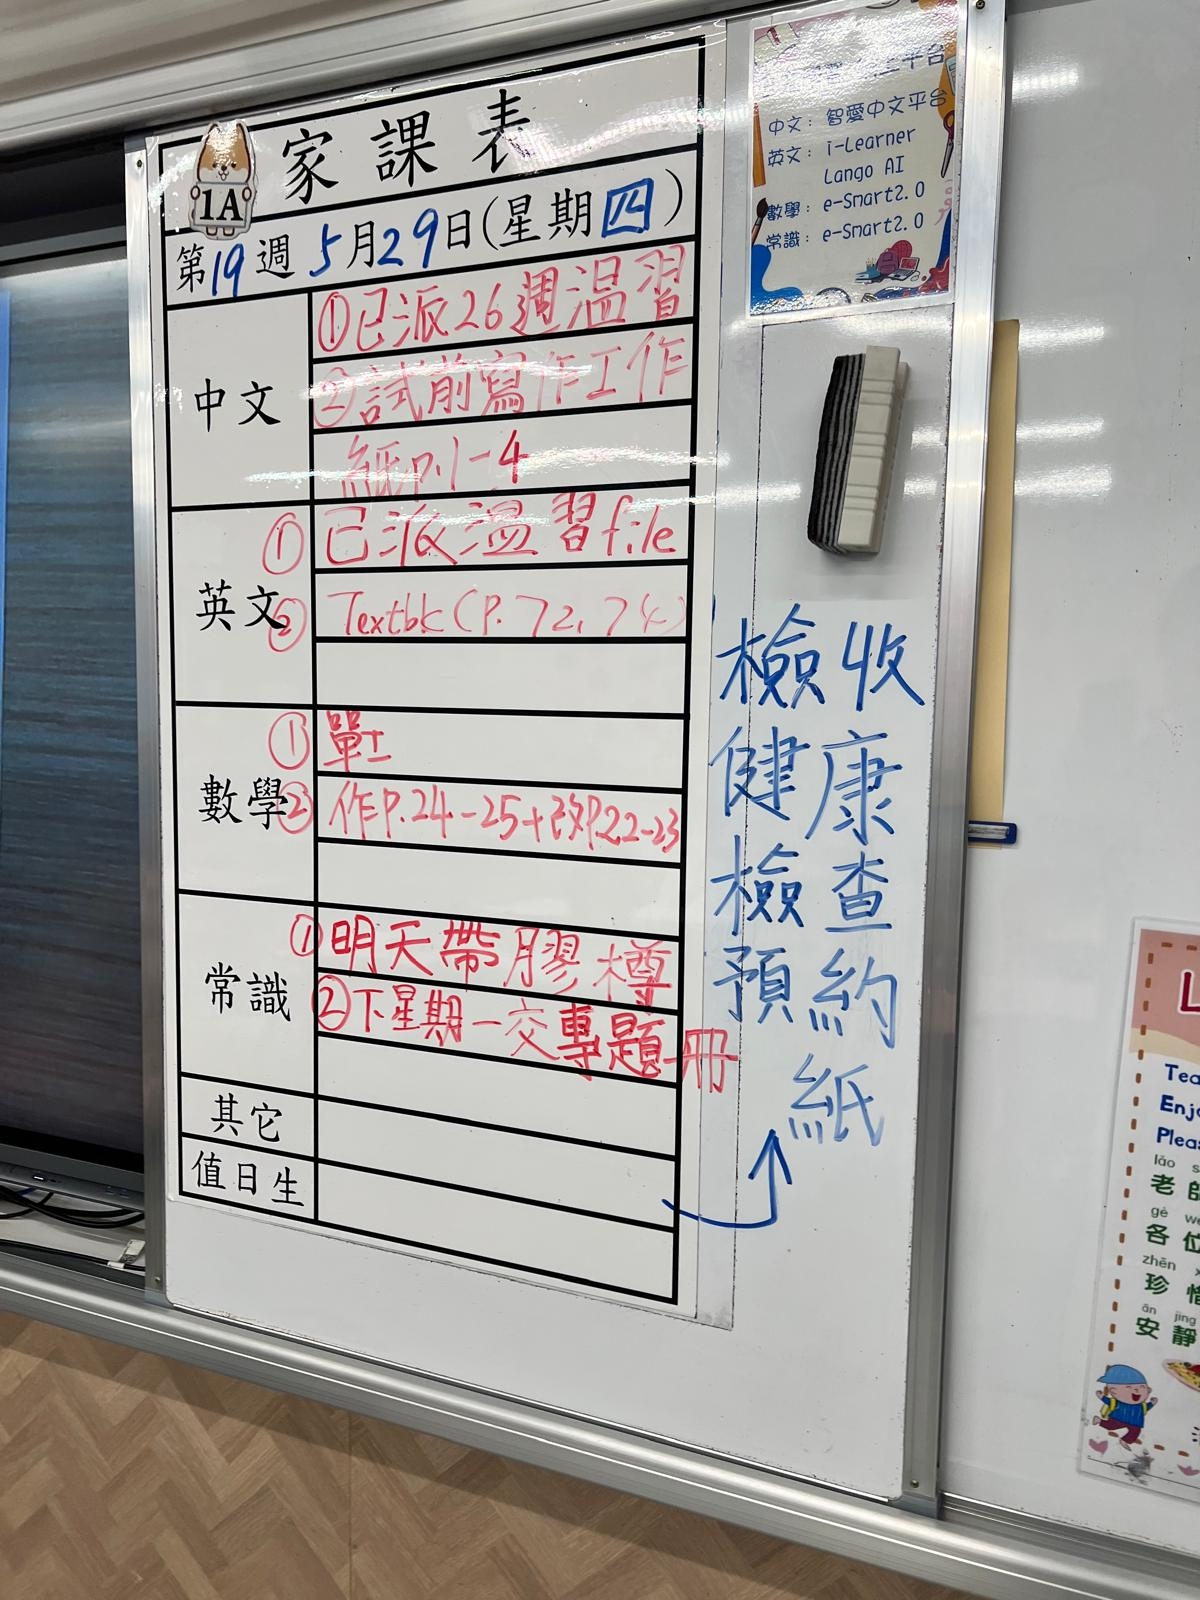 家課表
1A
第19週 5月29日(星期四)
中文
①已派26週温習
②試前寫作工作
紙P.1-4
英文
①已派温習file
②Textbk(P.72,74)
數學
①單
②作P.24-25+改P.22-23
常識
①明天帶膠樽
②下星期一交專題冊
其它
值日生
平台
中文：智愛中文平台
英文：i-Learner
Lango AI
數學：e-Smart2.0
常識：e-Smart2.0
檢收
健康
檢查
預約
紙
L
Tea
Enj
Pleas
lǎo s
老師
gè we
各位
zhēn x
珍惜
ān jìng
安靜